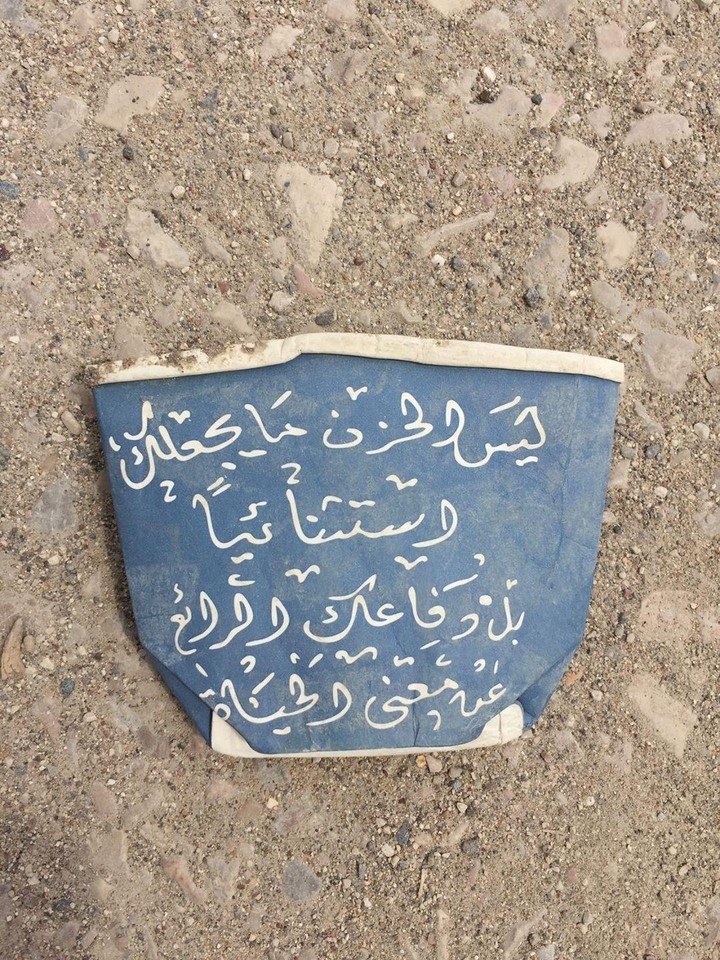 ليسَ الحزن مَا يجعلكَ
استثنائياً
بلْ دِفَاعك الرائع
عَنْ مَعْنَى الحَيَاة